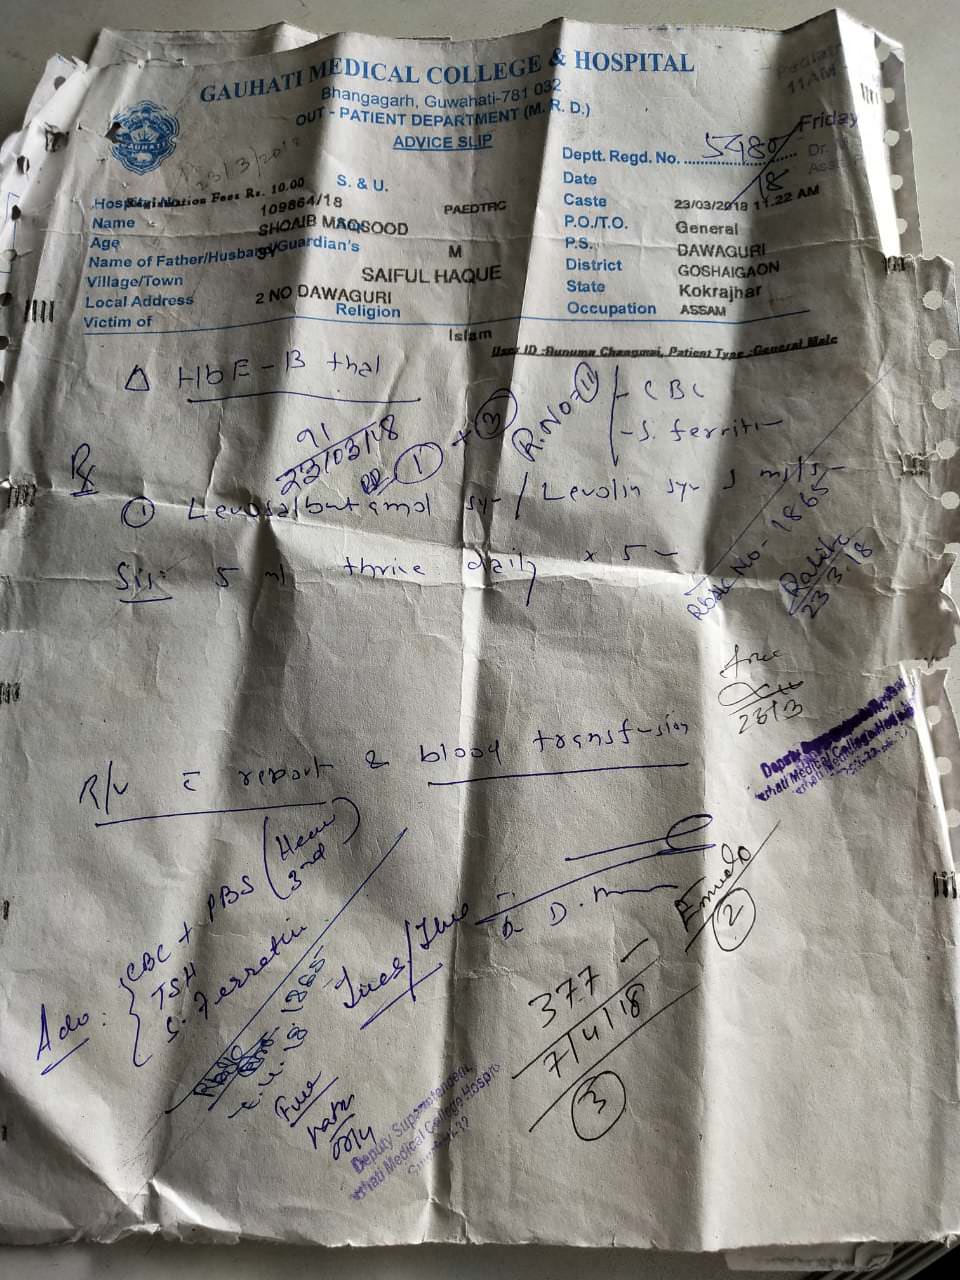 GAUHATI MEDICAL COLLEGE & HOSPITAL
Bhangagarh, Guwahati-781 032
OUT - PATIENT DEPARTMENT (M. R. D.)
ADVICE SLIP
11AM
Friday
Deptt. Regd. No. 5480/18
23/3/2018
Registration Fees Rs. 10.00
S. & U.
Date 23/03/2018 11.22 AM
109864/18
PAEDTRC
Caste General
Name SHOAIB MAQSOOD
P.O./T.O. DAWAGURI
Age 9Y
M
P.S. GOSHAIGAON
Name of Father/Husband/Guardian's SAIFUL HAQUE
District Kokrajhar
Village/Town 2 NO DAWAGURI
State ASSAM
Local Address
Religion Islam
Occupation
Victim of
User ID :Bunuma Changmai, Patient Type :General Male
Δ HbE - B thal
- CBC
- S. ferritin
91
23/03/18
1 + 3
R.No = 11
Rx
1 Levosalbutamol syr / Levolin syr 5 ml/5-
Sig: 5 ml thrice daily x 5 -
Rbsk No - 1865
23.3.18
free
23/3
R/v c̄ report & blood transfusion
Deputy Superintendent,
Gauhati Medical College Hospital
Adv: CBC + PBS (Hem 3rd)
TSH
S. Ferretin
Tues/Thu
Dr D.
377 -
7/4/18
3
2
1865
Free
Deputy Superintendent,
Gauhati Medical College Hospital